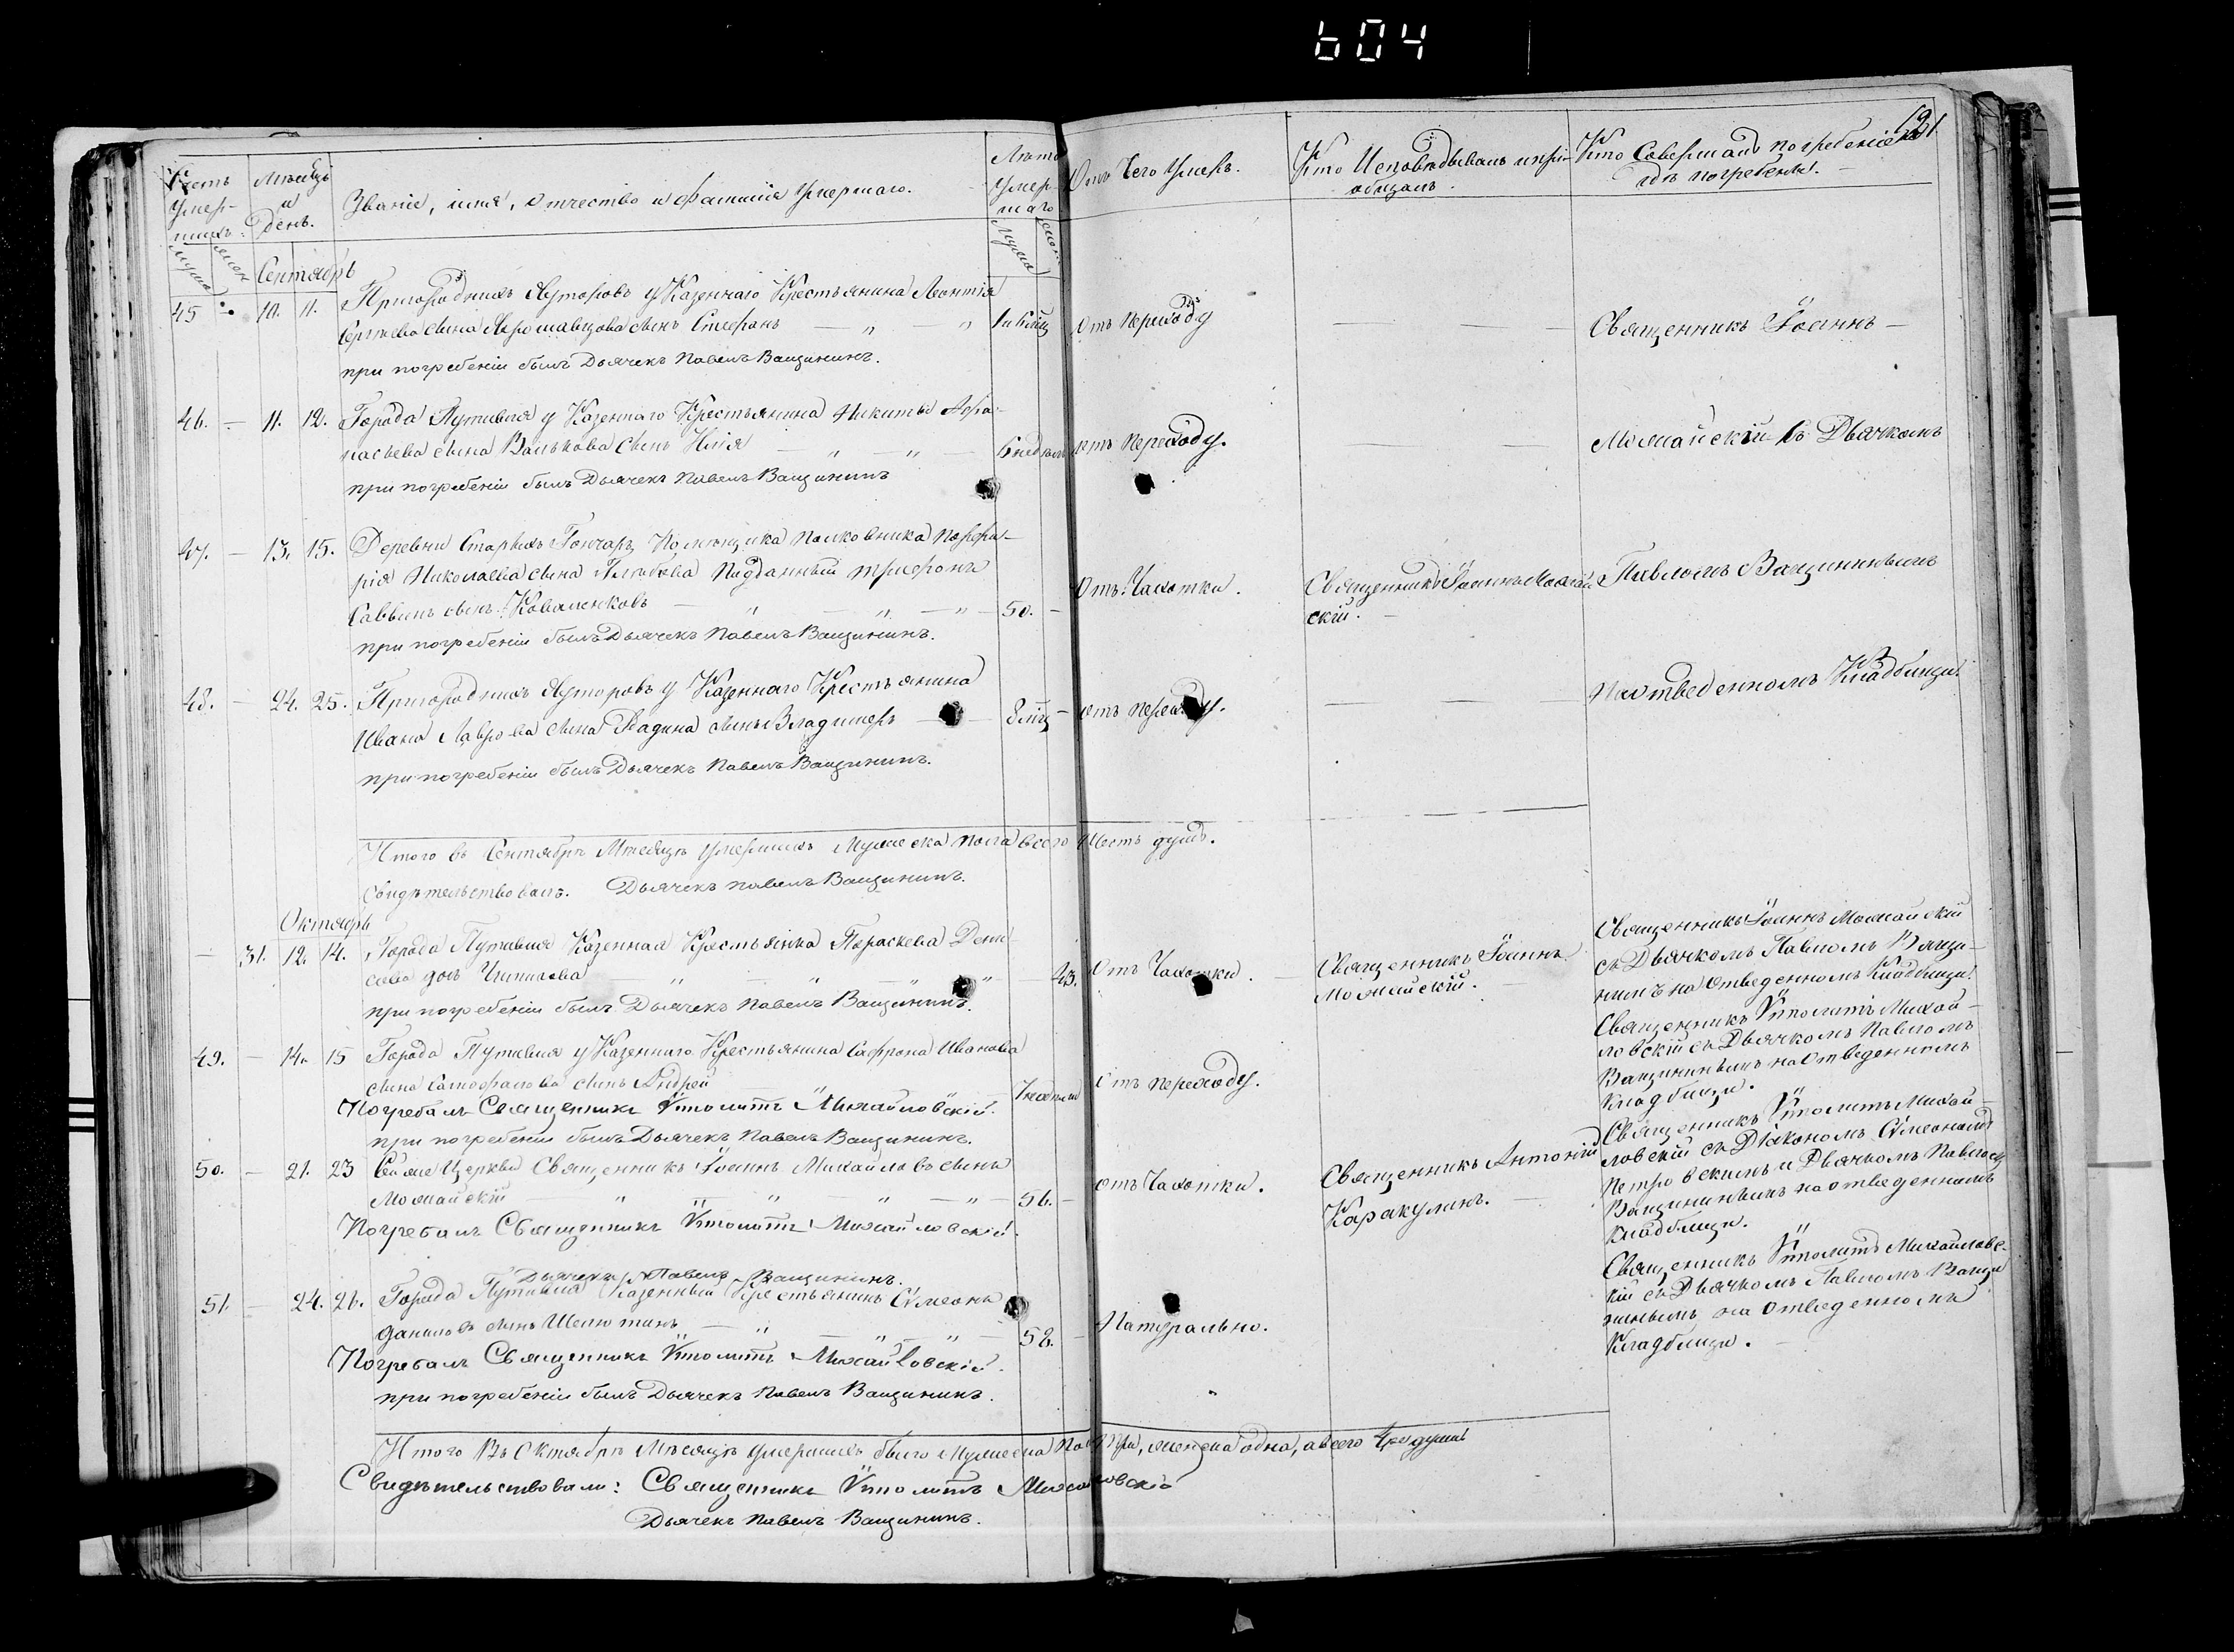 604
121.
Счетъ умер-шихъ.
Мѣсяцъ и День.
Званіе, имя, отчество и фамилія умершаго.
Лѣта умер-шаго
Отъ Чего умеръ.
Кто Исповѣдывалъ и прі-общалъ.
Кто Совершалъ погребеніе и гдѣ погребенъ.
Сентябрь
45 10. 11. Пригородныхъ Хуторовъ у Казеннаго Крестьянина Леонтія
Сергѣева сына сынъ Стефанъ
Отъ переходу
Священникъ Іоаннъ
при погребеніи былъ Дьячекъ Павелъ Ващининъ.
46. 11. 12. Города Путивля у Казеннаго Крестьянина Никиты Афа-
насьева сына Валькова сынъ Илія
6 недѣль отъ переходу.
Можайскій съ Дьячкомъ
при погребеніи былъ Дьячекъ Павелъ Ващининъ
47. 13. 15. Деревни Старыхъ Гончаръ Помѣщика Полковника Порфи-
рія Николаева сына Глѣбова Подданный Трифонъ
Саввинъ сынъ Коваленковъ 50.
Отъ Чахотки.
Священникъ Іоаннъ Можай-
скій.
Павломъ Ващининымъ
при погребеніи былъ Дьячекъ Павелъ Ващининъ.
48. 24. 25. Пригородныхъ Хуторовъ у Казеннаго Крестьянина
Ивана Лаврова сына сынъ Владимеръ
8 мѣц отъ переходу.
На отведенномъ Кладбищѣ
при погребеніи былъ Дьячекъ Павелъ Ващининъ.
Итого въ Сентябрѣ Мѣсяцѣ умершихъ Мужеска пола всего шесть душъ.
Свидѣтельствовалъ. Дьячекъ Павелъ Ващининъ.
Октябрь
31. 12. 14. Города Путивля Казенная Крестьянка Параскева Дени-
сова дочь 43.
Отъ Чахотки.
Священникъ Іоаннъ
Можайскій.
Священникъ Іоаннъ Можайскій
съ Дьячкомъ Павломъ Ващи-
нинъ на отведенномъ Кладбищѣ
при погребеніи былъ Дьячекъ Павелъ Ващининъ.
49. 14. 15 Города Путивля у Казеннаго Крестьянина Сафрона Иванова
сына сынъ Андрей
7 недѣль
Отъ переходу.
Священникъ Ѵпполитъ Михай-
ловскій съ Дьячкомъ Павломъ
Ващининымъ на Отведенномъ
Кладбищѣ.
Погребалъ Священникъ Ѵпполитъ Михайловскій.
при погребеніи былъ Дьячекъ Павелъ Ващининъ.
50. 21. 23 Сей же Церкви Священникъ Іоаннъ Михайловъ сынъ
Можайскій 56.
отъ Чахотки.
Священникъ Антоній
Каракулинъ.
Священникъ Ѵпполитъ Михай-
ловскій съ Діакономъ Сѵмеономъ
Петровскимъ и Дьячкомъ Павломъ
Ващининымъ на отведенномъ
Кладбищѣ.
Погребалъ Священникъ Ѵпполитъ Михайловскій.
Дьячекъ Павелъ Ващининъ.
51. 24. 26. Города Путивля Казенный Крестьянинъ Сѵмеонъ
Даниловъ сынъ Шелютинъ 58.
Натурально.
Священникъ Ѵпполитъ Михайловс-
кій съ Дьячкомъ Павломъ Ващи
нинымъ на отведенномъ
Кладбищѣ.
Погребалъ Священникъ Ѵпполитъ Михайловскій.
при погребеніи былъ Дьячекъ Павелъ Ващининъ.
Итого Въ Октябрѣ Мѣсяцѣ умершихъ было Мужеска пола три, женска одна, а всего души
Свидѣтельствовали: Священникъ Ѵпполитъ Михайловскій
Дьячекъ Павелъ Ващининъ.